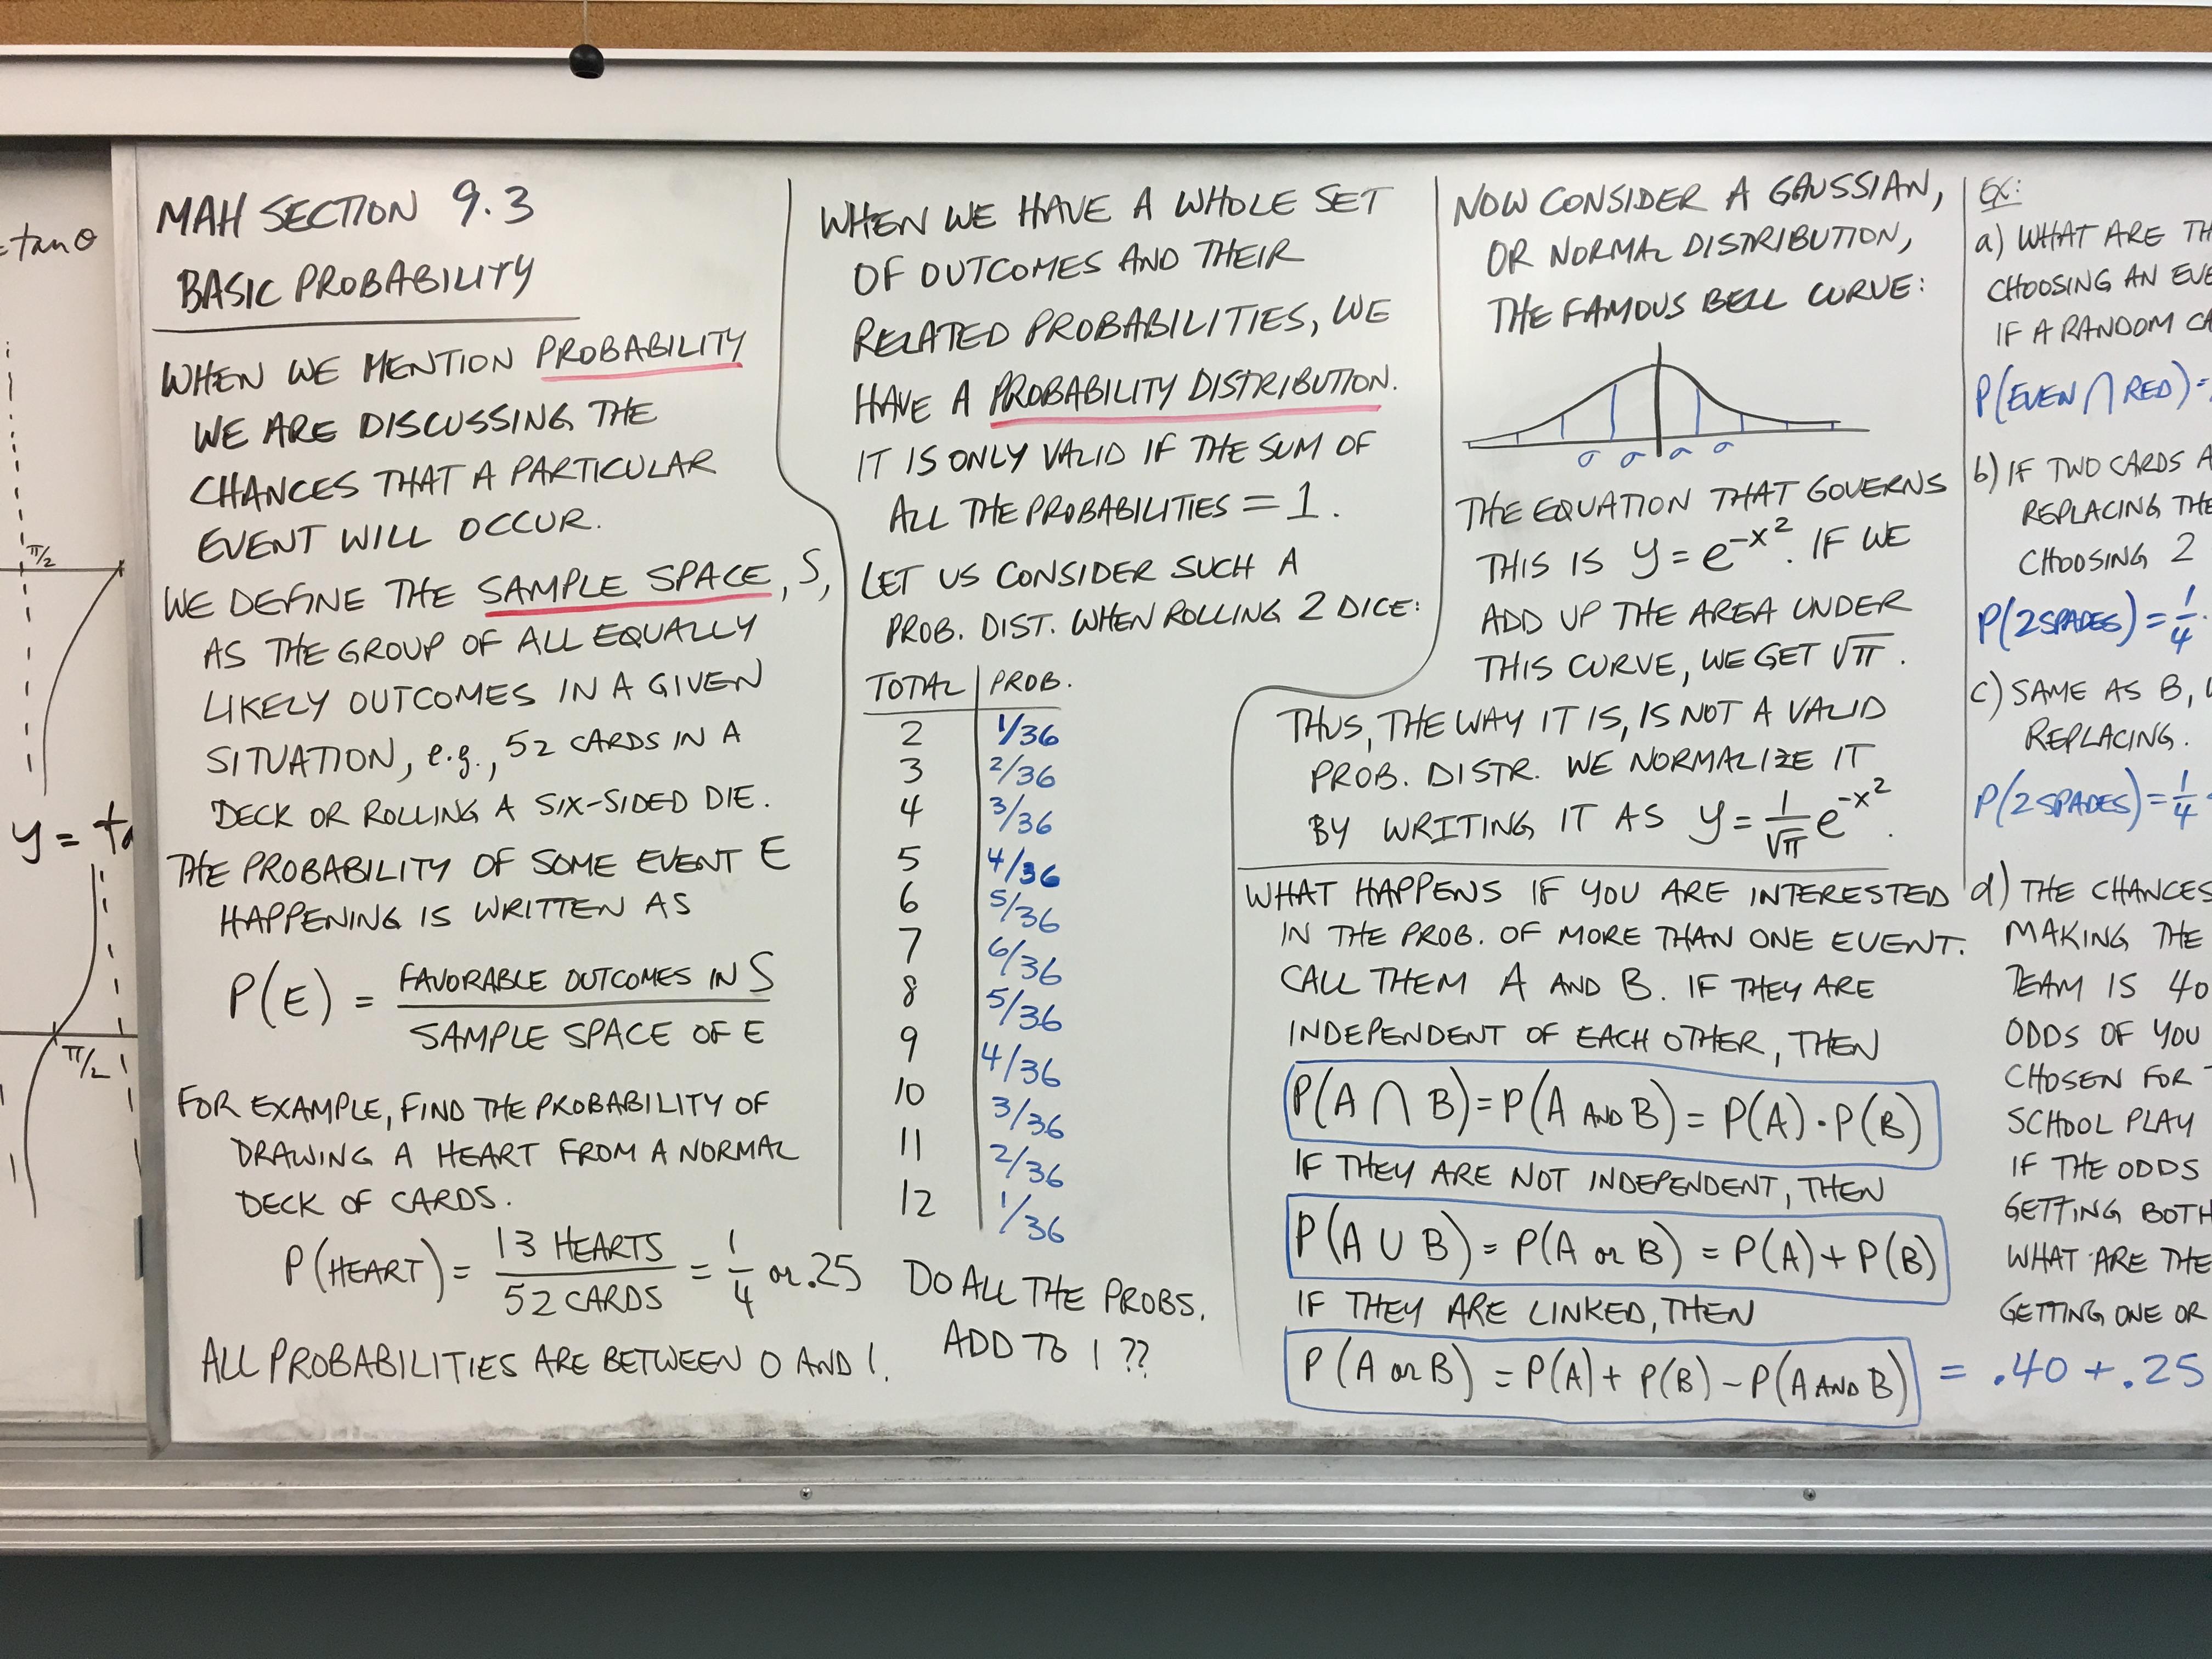 = tan θ
π/2
y = ta
π/2
MAH SECTION 9.3
BASIC PROBABILITY
WHEN WE MENTION PROBABILITY
WE ARE DISCUSSING THE
CHANCES THAT A PARTICULAR
EVENT WILL OCCUR.
WE DEFINE THE SAMPLE SPACE, S,
AS THE GROUP OF ALL EQUALLY
LIKELY OUTCOMES IN A GIVEN
SITUATION, e.g., 52 CARDS IN A
DECK OR ROLLING A SIX-SIDED DIE.
THE PROBABILITY OF SOME EVENT E
HAPPENING IS WRITTEN AS
P(E) = FAVORABLE OUTCOMES IN S / SAMPLE SPACE OF E
FOR EXAMPLE, FIND THE PROBABILITY OF
DRAWING A HEART FROM A NORMAL
DECK OF CARDS.
P(HEART) = 13 HEARTS / 52 CARDS = 1/4 or .25
ALL PROBABILITIES ARE BETWEEN 0 AND 1.
WHEN WE HAVE A WHOLE SET
OF OUTCOMES AND THEIR
RELATED PROBABILITIES, WE
HAVE A PROBABILITY DISTRIBUTION.
IT IS ONLY VALID IF THE SUM OF
ALL THE PROBABILITIES = 1.
LET US CONSIDER SUCH A
PROB. DIST. WHEN ROLLING 2 DICE:
TOTAL PROB.
2 1/36
3 2/36
4 3/36
5 4/36
6 5/36
7 6/36
8 5/36
9 4/36
10 3/36
11 2/36
12 1/36
DO ALL THE PROBS.
ADD TO 1??
NOW CONSIDER A GAUSSIAN,
OR NORMAL DISTRIBUTION,
THE FAMOUS BELL CURVE:
σ σ σ σ
THE EQUATION THAT GOVERNS
THIS IS y = e^-x². IF WE
ADD UP THE AREA UNDER
THIS CURVE, WE GET √π.
THUS, THE WAY IT IS, IS NOT A VALID
PROB. DISTR. WE NORMALIZE IT
BY WRITING IT AS y = 1/√π e^-x².
WHAT HAPPENS IF YOU ARE INTERESTED
IN THE PROB. OF MORE THAN ONE EVENT.
CALL THEM A AND B. IF THEY ARE
INDEPENDENT OF EACH OTHER, THEN
P(A ∩ B) = P(A AND B) = P(A) · P(B)
IF THEY ARE NOT INDEPENDENT, THEN
P(A ∪ B) = P(A or B) = P(A) + P(B)
IF THEY ARE LINKED, THEN
P(A or B) = P(A) + P(B) - P(A AND B) = .40 + .25
EX:
a) WHAT ARE TH
CHOOSING AN EVE
IF A RANDOM CA
P(EVEN ∩ RED) =
b) IF TWO CARDS A
REPLACING THE
CHOOSING 2
P(2 SPADES) = 1/4 ·
c) SAME AS B,
REPLACING.
P(2 SPADES) = 1/4
d) THE CHANCES
MAKING THE
TEAM IS 40
ODDS OF YOU
CHOSEN FOR
SCHOOL PLAY
IF THE ODDS
GETTING BOTH
WHAT ARE THE
GETTING ONE OR